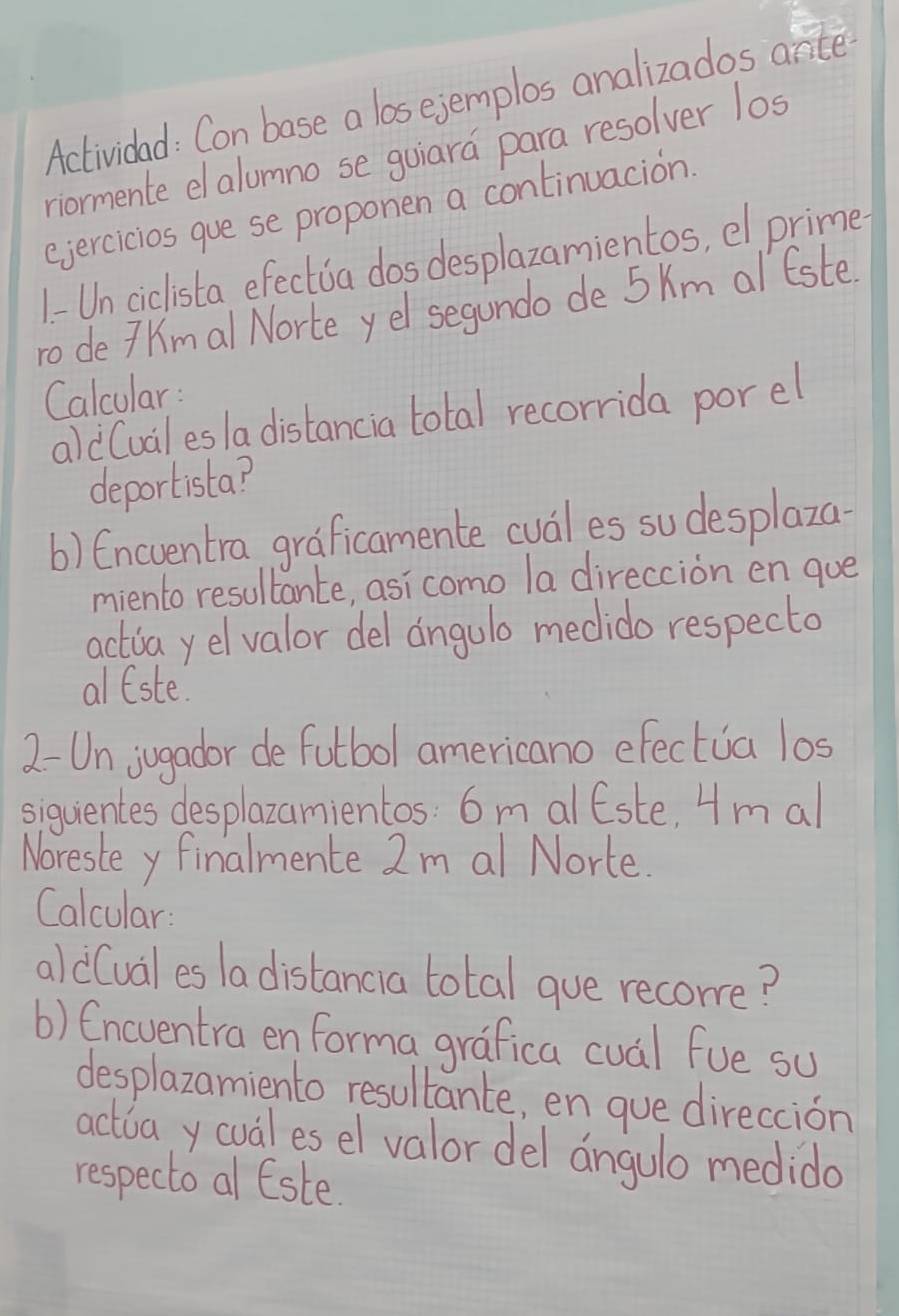 Actividad: Con base a los ejemplos analizados ante-
riormente el alumno se guiará para resolver los
ejercicios que se proponen a continuación.
1.- Un ciclista efectúa dos desplazamientos, el prime-
ro de 7Km al Norte y el segundo de 5Km al Este.
Calcular:
a) ¿Cuál es la distancia total recorrida por el
deportista?
b) Encuentra gráficamente cuál es su desplaza-
miento resultante, así como la dirección en que
actúa y el valor del ángulo medido respecto
al Este.
2.- Un jugador de futbol americano efectúa los
siguientes desplazamientos: 6 m al Este, 4 m al
Noreste y finalmente 2 m al Norte.
Calcular:
a) ¿Cuál es la distancia total que recorre?
b) Encuentra en forma gráfica cuál fue su
desplazamiento resultante, en que dirección
actúa y cuál es el valor del ángulo medido
respecto al Este.